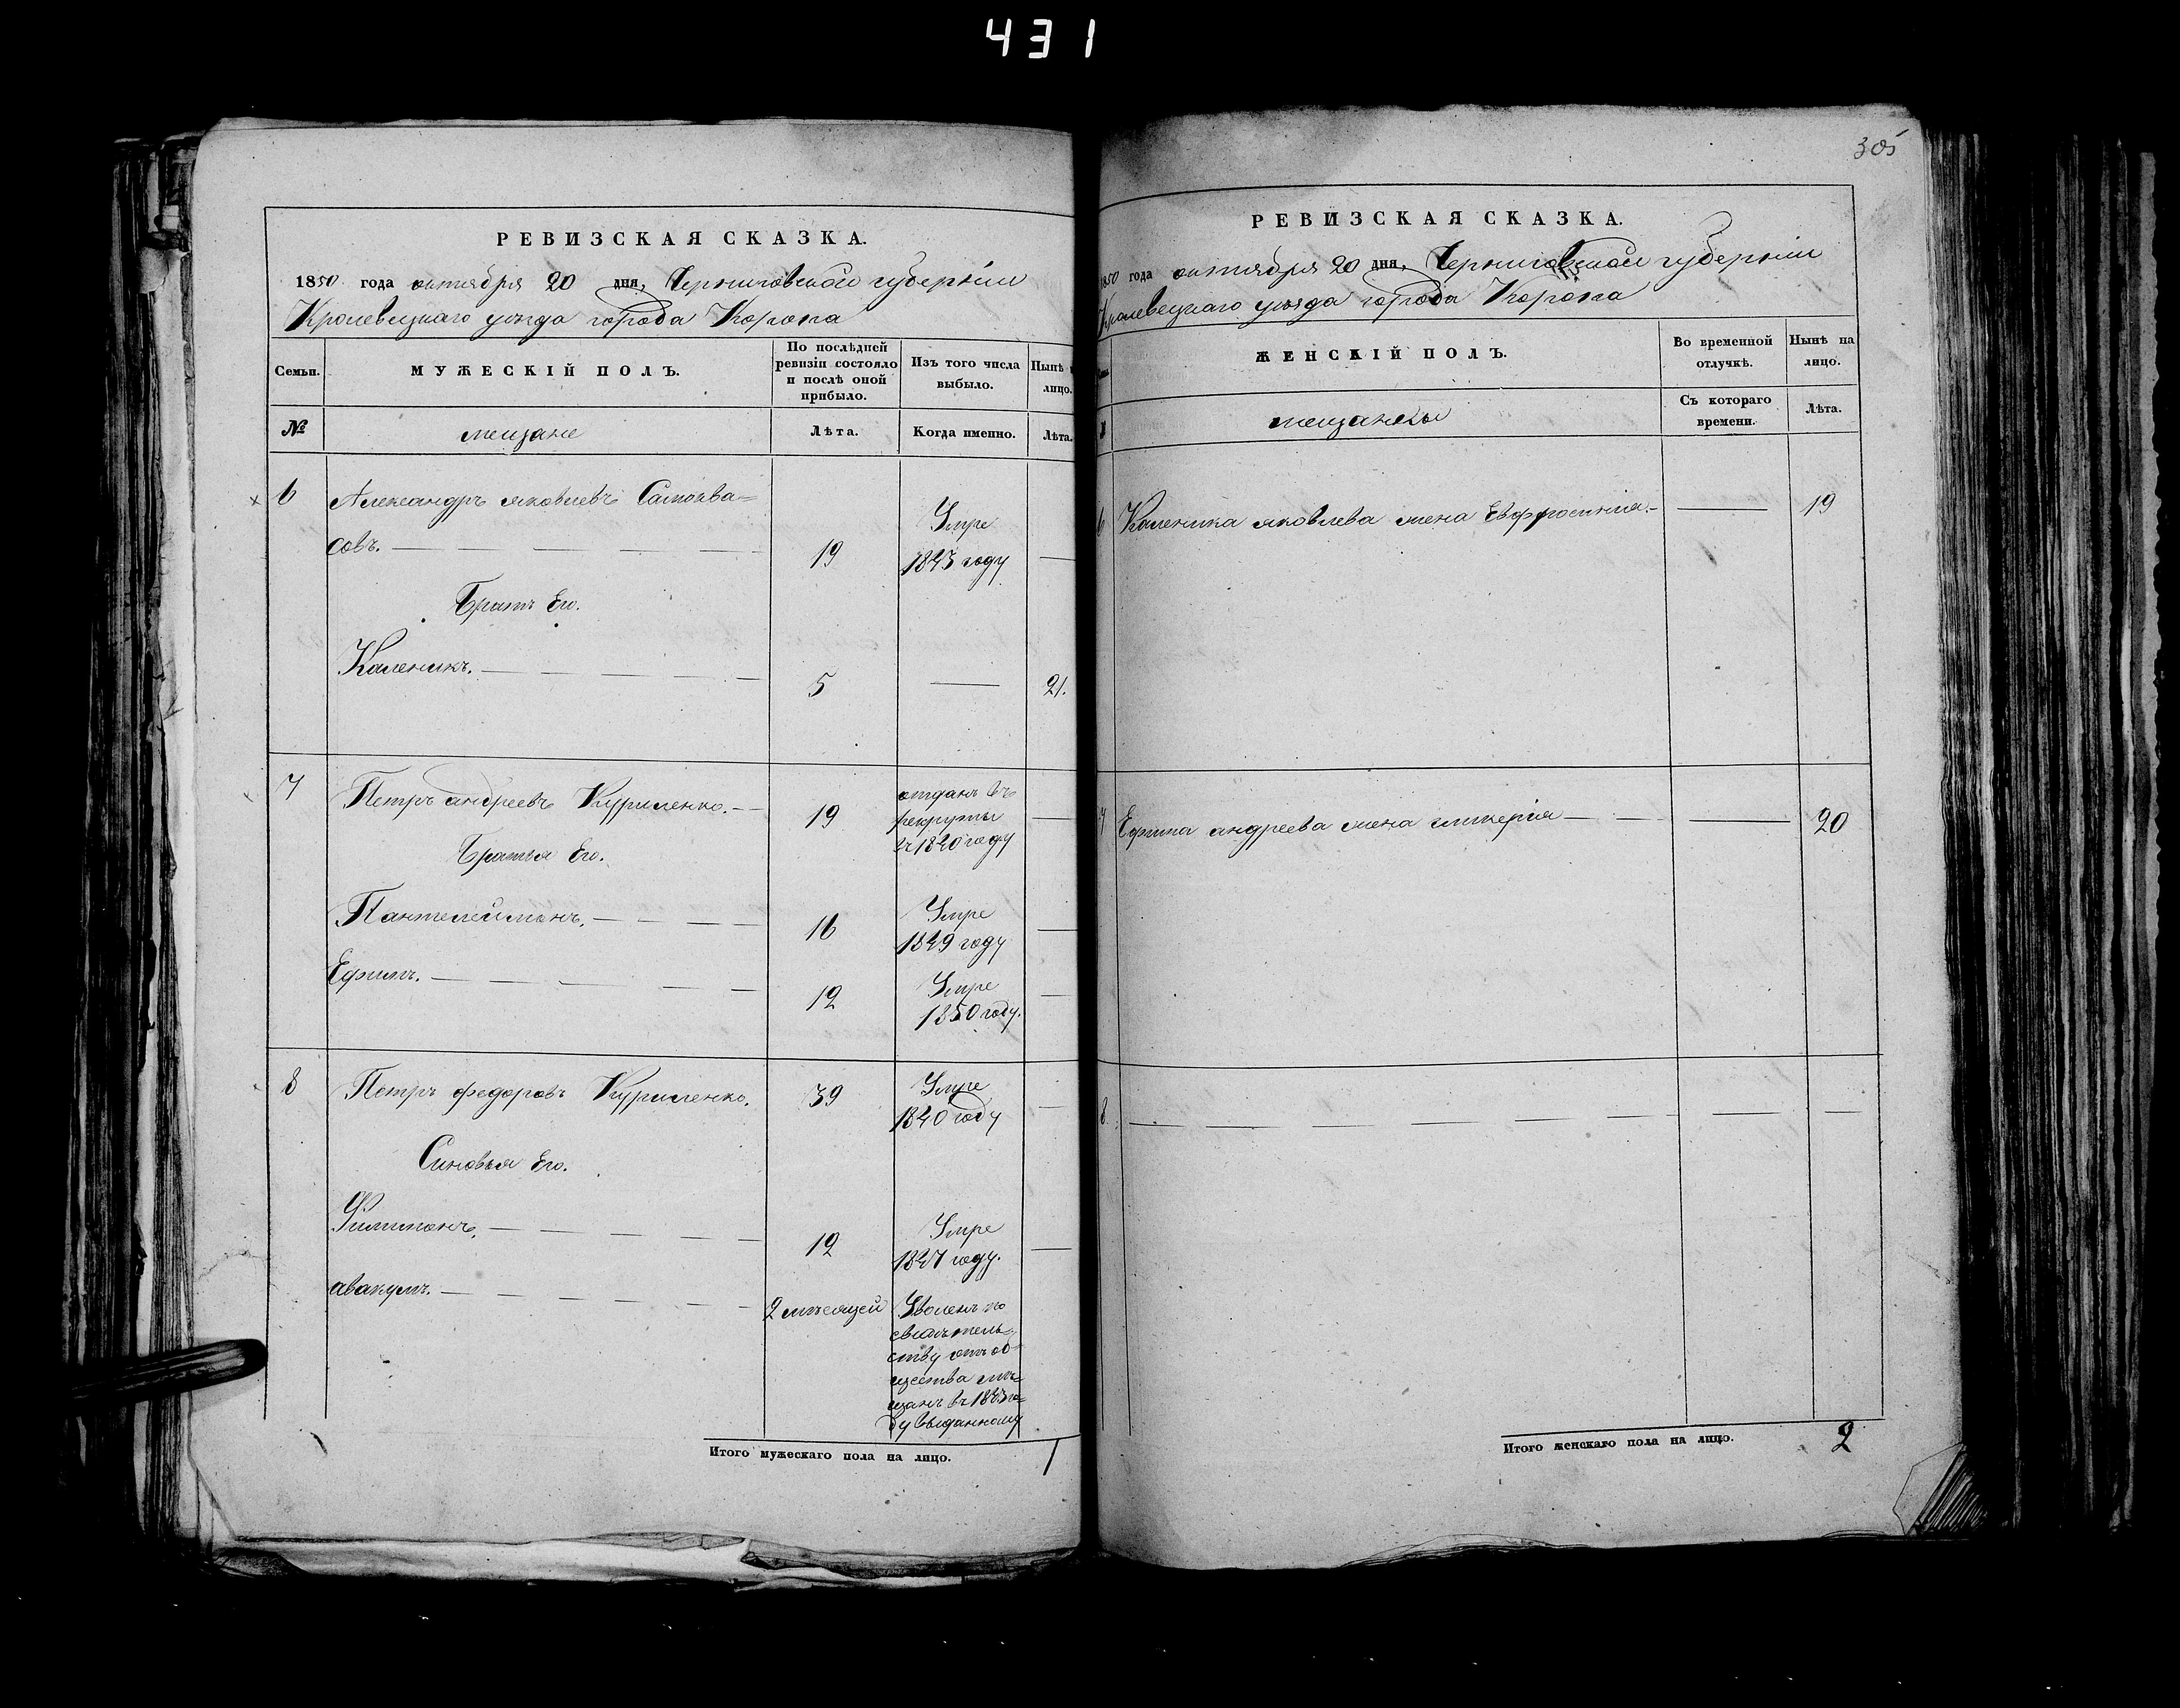 431
РЕВИЗСКАЯ СКАЗКА.
1850 года октября 20 дня, Черниговской губернiи
Кролевецкаго уѣзда города Коропа
Семьи.
МУЖЕСКIЙ ПОЛЪ.
По послѣдней ревизiи состояло и послѣ оной прибыло.
Изъ того числа выбыло.
Нынѣ
лицо.
№
мещане
Лѣта.
Когда именно.
Лѣта.
6
Александръ яковлевъ Самоква=
совъ.
19
Умре
1843 году
Братъ Его.
Каленикъ.
5
21.
7
Петръ андреевъ Куриленко.
19
отданъ въ
рекруты
въ 1840 году
Братья Его.
Пантелеймонъ.
16
Умре
1849 году
Ефимъ.
12
Умре
1850 году.
8
Петръ федоровъ Куриленко.
39
Умре
1840 году
Синовья Его.
Филимонъ.
12
Умре
1847 году.
авакумъ.
2 мѣсяцей
Уволенъ по
свидѣтель=
ству отъ об=
щества мѣ=
щанъ въ 1843 го=
ду выданному
Итого мужескаго пола на лицо.
1
305
РЕВИЗСКАЯ СКАЗКА.
1850 года октября 20 дня, Черниговской губернiи
Кролевецкаго уѣзда города Коропа
ЖЕНСКIЙ ПОЛЪ.
Во временной отлучкѣ.
Нынѣ на лицо.
мещанкы
Съ котораго времени.
Лѣта.
6
Каленика яковлева жена Евфросинiя.
19
7
Ефима андреева жена гликерiя
20
8.
Итого женскаго пола на лицо.
2